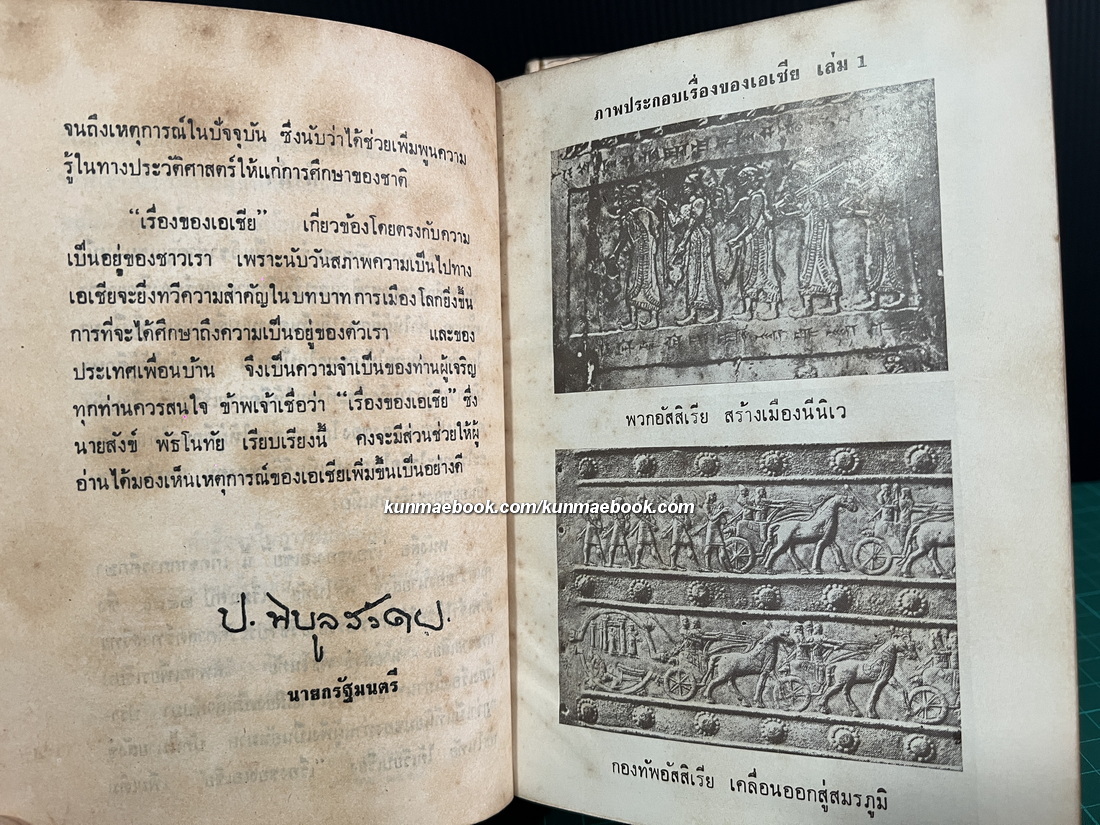 จนถึงเหตุการณ์ในปัจจุบัน ซึ่งนับว่าได้ช่วยเพิ่มพูนความ
รู้ในทางประวัติศาสตร์ให้แก่การศึกษาของชาติ
“เรื่องของเอเชีย” เกี่ยวข้องโดยตรงกับความ
เป็นอยู่ของชาวเรา เพราะนับวันสภาพความเป็นไปทาง
เอเชียจะยิ่งทวีความสำคัญในบทบาทการเมืองโลกยิ่งขึ้น
การที่จะได้ศึกษาถึงความเป็นอยู่ของตัวเรา และของ
ประเทศเพื่อนบ้าน จึงเป็นความจำเป็นของท่านผู้เจริญ
ทุกท่านควรสนใจ ข้าพเจ้าเชื่อว่า “เรื่องของเอเชีย” ซึ่ง
นายสังข์ พัธโนทัย เรียบเรียงนี้ คงจะมีส่วนช่วยให้ผู้
อ่านได้มองเห็นเหตุการณ์ของเอเชียเพิ่มขึ้นเป็นอย่างดี
ป. พิบูลสงคราม
นายกรัฐมนตรี
ภาพประกอบเรื่องของเอเซีย เล่ม 1
พวกอัสสิเรีย สร้างเมืองนีนิเว
กองทัพอัสสิเรีย เคลื่อนออกสู่สมรภูมิ
kunmaebook.com/kunmaebook.com